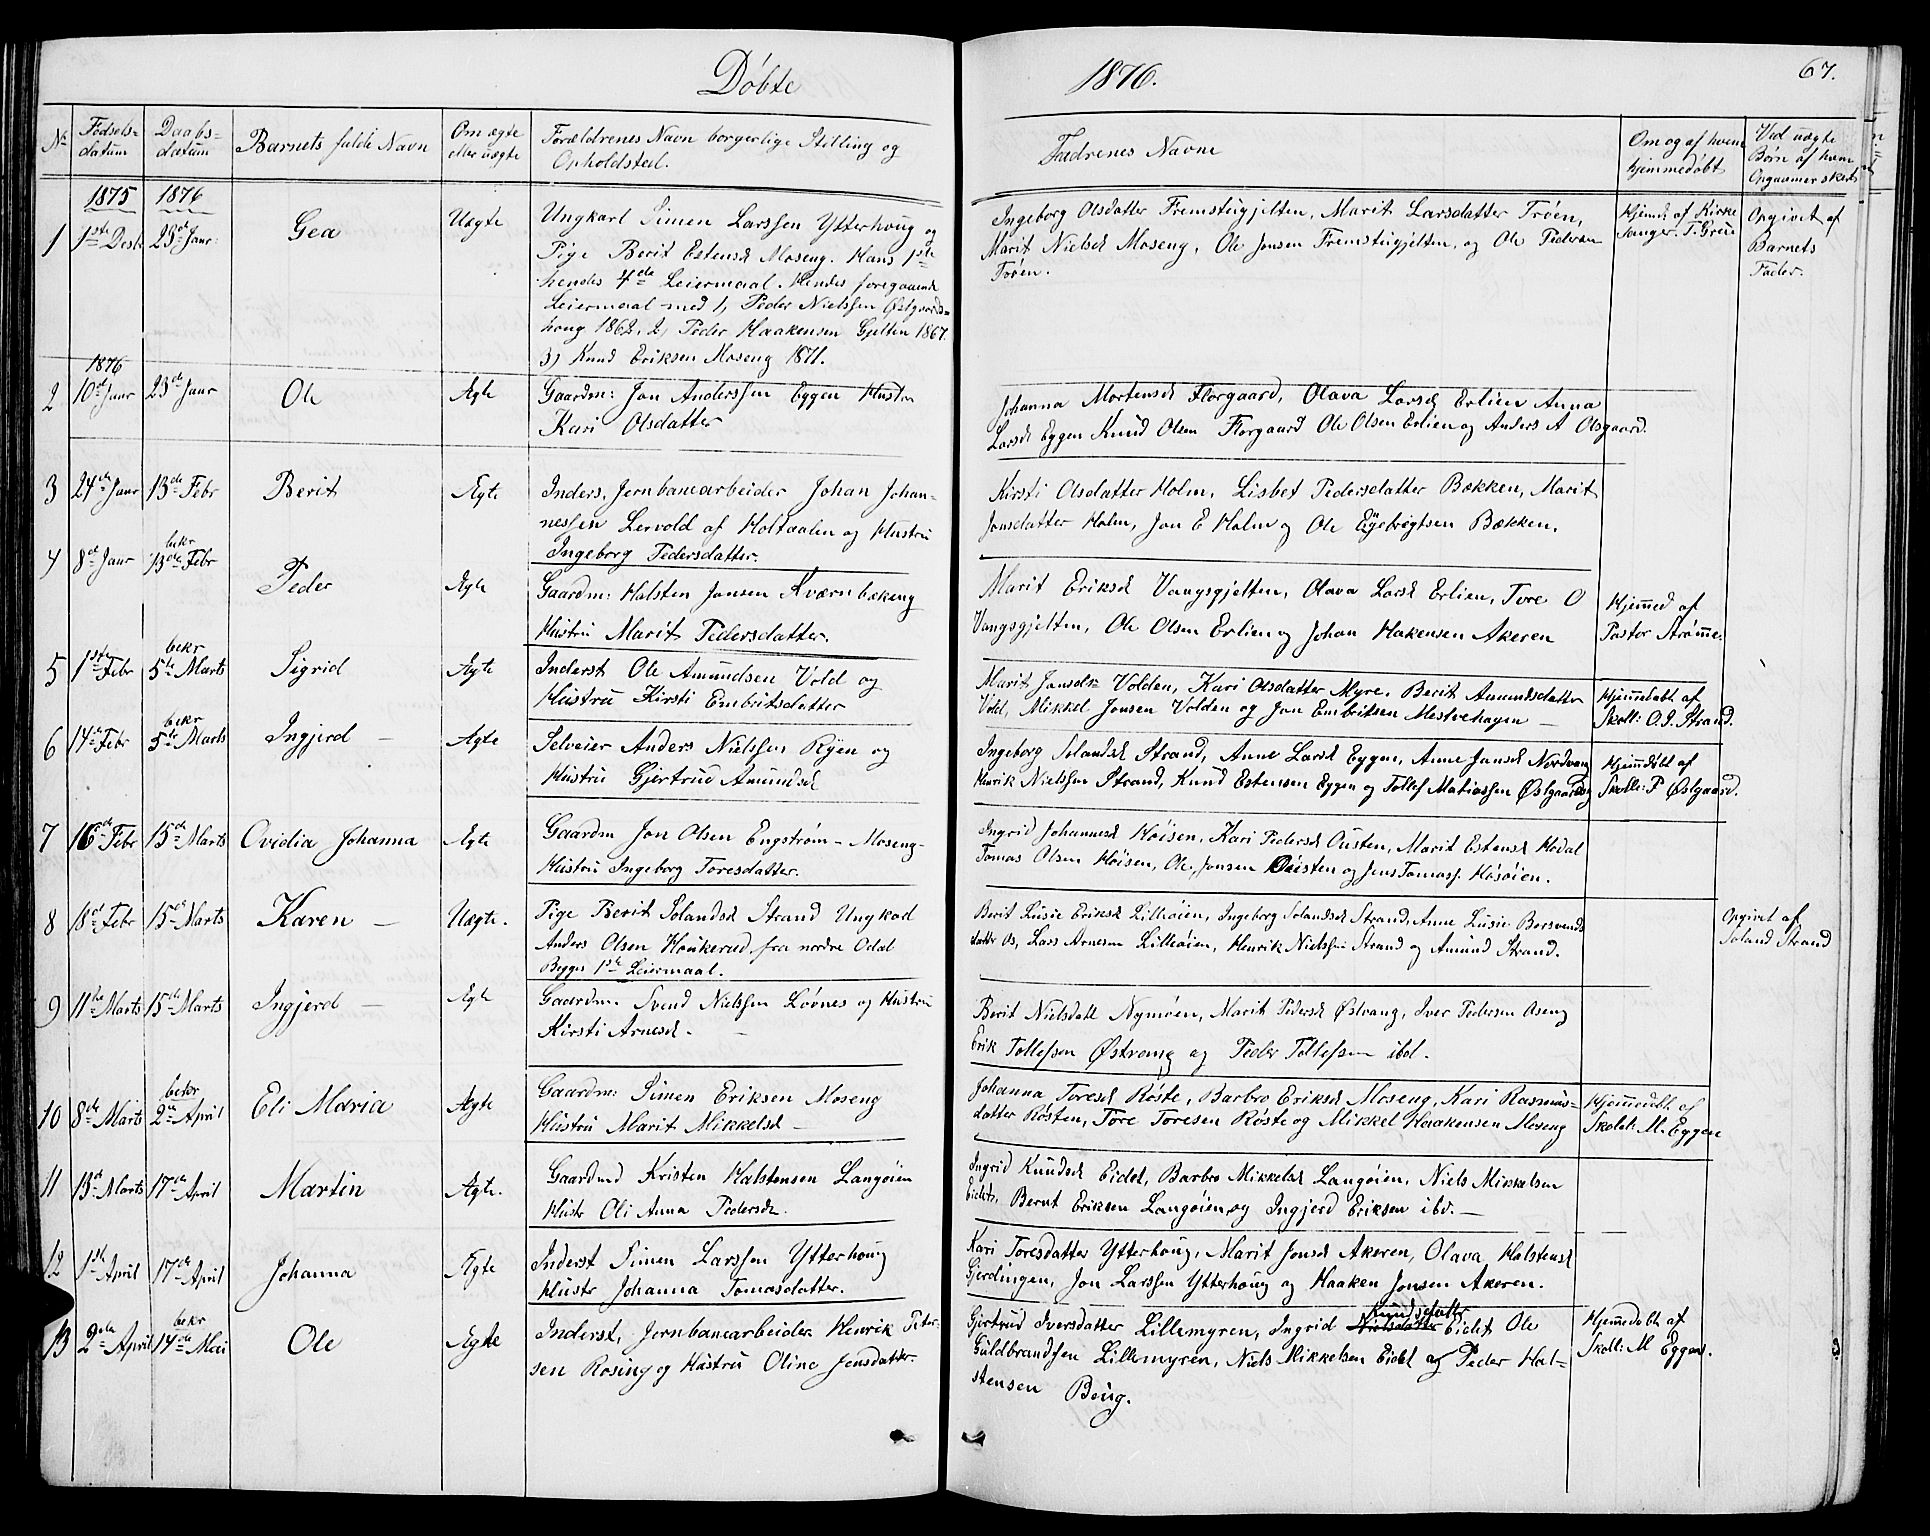 Døbte
1876.
67.
No
Fødsels-
datum
Daabs-
datum
Barnets fulde Navn
Om ægte
eller uægte
Forældrenes Navn borgerlige Stilling og
Opholdsted.
Fadrenes Navne
Om og af hvem
hjemmedøbt
Ved uægte
Børn af hvem
1875
1876
1
1ste Desb
23de Janr
Gea
Uægte
Ungkarl Simen Larssen Ytterhoug og
Pige Berit Estensd Moseng. Hans 1ste
hendes 4de Leiermaal. Hendes foregaaende
Leiermaal med 1, Peder Nielssen Østgaards-
houg 1862. 2, Peder Haakensen Gjelten 1867.
3) Knud Eriksen Moseng 1871.
Ingeborg Olsdatter Fremstugjelten, Marit Larsdatter Trøen,
Marit Nielsd Moseng, Ole Jonsen Fremstugjelten, og Ole Pedersen
Trøen.
Hjemd. af Kirke
sanger. T. Greue
Opgivet af
Barnets
Fader.
1876
2
10de Janr
23de Janr
Ole
Ægte
Gaardm: Jon Anderssen Eggen Hustru
Kari Olsdatter
Johanna Mortensd Florgaard, Olava Larsd Erlien Anna
Larsd Eggen Knud Olsen Florgaard Ole Olsen Erlien og Anders A Olsgaard.
3
24de Janr
13de Febr
Berit
Ægte
Inders. Jernbanearbeider Johan Johan-
nessen Lervold af Holtaalen og Hustru
Ingeborg Pedersdatter.
Kirsti Olsdatter Holm, Lisbet Pedersdatter Bækken, Marit
Jonsdatter Holm, Jon E Holm og Ole Engebrigtsen Bækken.
4
8de Janr
bekr
13de Febr
Peder
Ægte
Gaardm: Halsten Jonsen Kværnbækeng
Hustru Marit Pedersdatter.
Marit Eriksd Vangsgjelten, Olava Larsd Erlien, Tore O
Vangsgjelten, Ole Olsen Erlien og Johan Hakensen Akeren
Hjemmed af
Pastor Strømme.
5
1ste Febr
bekr
5te Marts
Sigrid
Ægte
Inderst Ole Amundsen Vold og
Hustru Kirsti Embritsdatter
Marit Jonsdr Volden, Kari Olsdatter Myre, Berit Amundsdatter
Vold, Mikkel Jonsen Volden og Jon Embritsen Mestvehagen —
Hjemmedøbt af
Skoll: O. J. Strand.
6
14de Febr
bekr
5te Marts
Ingjerd —
Ægte
Selveier Anders Nielssen Ryen og
Hustru Gjertrud Amundsd
Ingeborg Solandsd Strand, Anne Larsd Eggen, Anne Jonsd Nordvang
Henrik Nielssen Strand, Knud Estensen Eggen og Tollef Matiassen Østgaard
Hjemmdøbt af
Skoll: P Østgaard.
7
16de Febr
15de Marts
Ovidia Johanna
Ægte
Gaardm Jon Olsen Engstrøm - Moseng-
Hustru Ingeborg Toresdatter.
Ingrid Johannesd Høisen, Kari Pedersd Ousten, Marit Estensd Hodal
Tomas Olsen Høisen, Ole Jonsen Ousten og Jens Tomass. Høsøien.
8
18de Febr
15de Marts
Karen —
Uægte.
Pige Berit Solandsd Strand Ungkarl
Anders Olsen Haukerud fra nordre Odal
Begges 1ste Leiermaal.
Berit Lusie Eriksd Lilleøien, Ingeborg Solandsd Strand, Anne Lusie Borsvends
datter Os, Lars Arnesen Lilleøien, Henrik Nielssen Strand og Amund Strand.
Opgivet af
Soland Strand
9
11te Marts
15de Marts
Ingjerd —
Ægte
Gaardm. Svend Nielssen Løvnes og Hustru
Kirsti Arnesd. —
Berit Nielsdatt Nymoen, Marit Pedersd Østvang, Iver Pedersen Aseng
Erik Tollefsen Østvang og Peder Tollefsen ibd.
10
8de Marts
bekr
2en April
Eli Maria
Ægte
Gaardm: Simen Eriksen Moseng
Hustru Marit Mikkelsd —
Johanna Toresd Røste, Barbro Eriksd Moseng, Kari Rasmus-
datter Røsten, Tore Toresen Røste og Mikkel Haakensen Moseng
Hjemmedøbt af
Skolel: M. Eggen
11
13de Marts
17de April
Martin
Ægte.
Gaardmd Kristen Halstensen Langøien
Hustr Oli Anna Pedersd.
Ingrid Knudsd Eidet, Barbro Mikkelsd Langøien, Niels Mikkelsen
Eidet, Bernt Eriksen Langøien, og Ingjerd Eriksen ibd. —
12
1ste April
17de April
Johanna
Ægte
Inderst Simen Larssen Ytterhoug
Hustr Johanna Tomasdatter.
Kari Toresdatter Ytterhoug, Marit Jonsd Akeren, Olava Halstensd
Gjerdingen, Jon Larssen Ytterhoug og Haaken Jonsen Akeren.
13
2den April
bekr
14de Mai
Ole
Ægte
Inderst, Jernbanearbeider Henrik Peter-
sen Rosing og Hustru Oline Jensdatter.
Knudsdatter
Gjertrud Iversdatter Lillemyren, Ingrid Nielsdatter Eidet Ole
Guldbrandsen Lillemyren, Niels Mikkelsen Eidet og Peder Hal-
stensen Boug.
Hjemmedøbt af
Skoll: M Eggen.